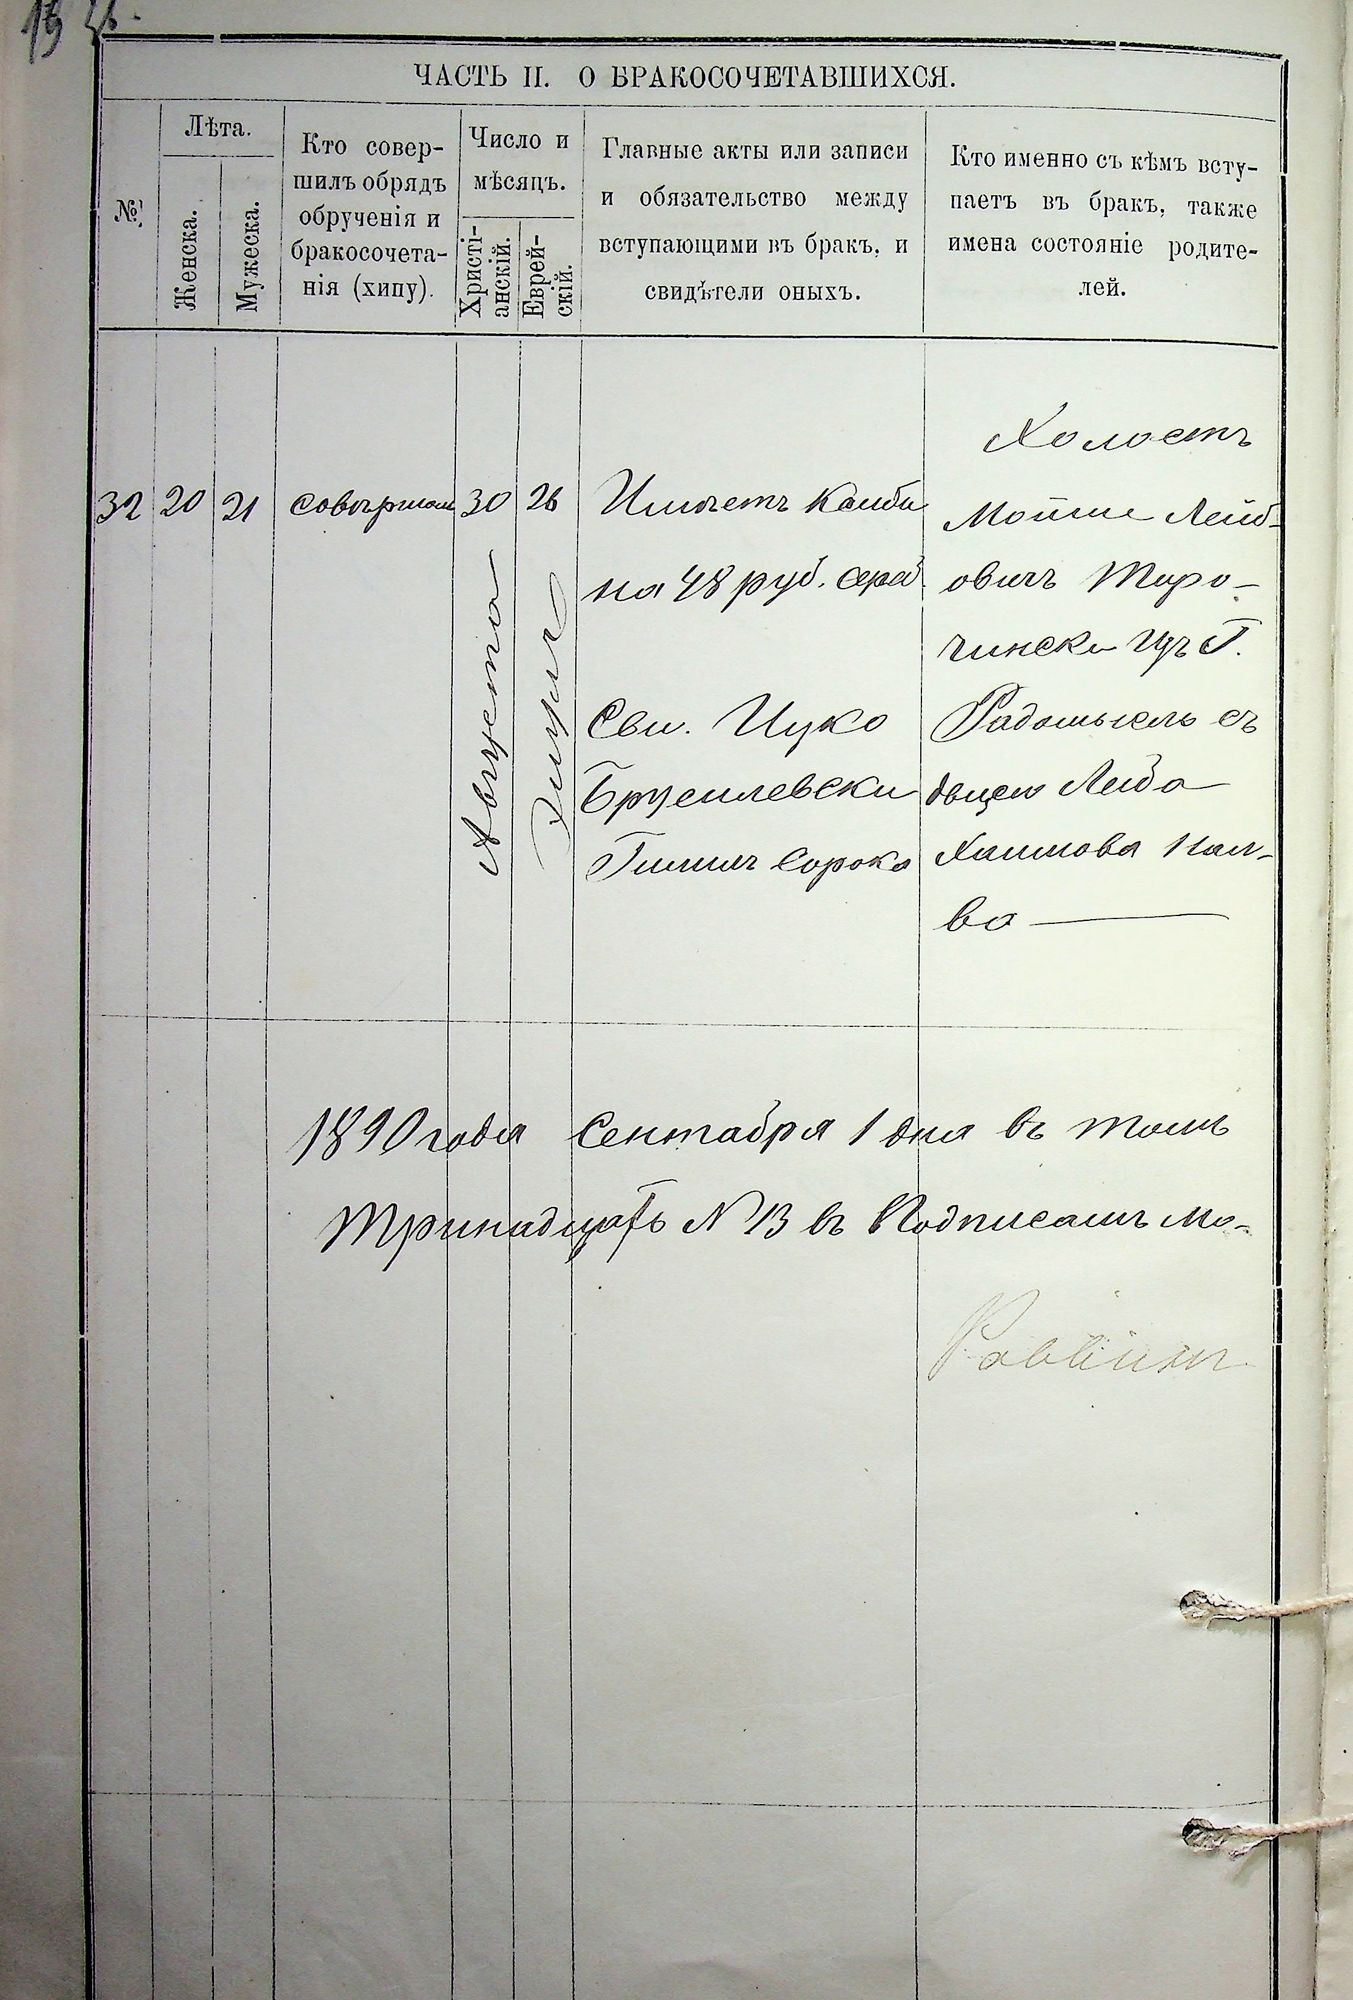 13
ЧАСТЬ II. О БРАКОСОЧЕТАВШИХСЯ.
№
Лѣта.
Женска.
Мужеска.
Кто совер-
шилъ обрядъ
обрученія и
бракосочета-
нія (хипу).
Число и
мѣсяцъ.
Христі-
анскій.
Еврей-
скій.
Главные акты или записи
и обязательство между
вступающими въ бракъ, и
свидѣтели оныхъ.
Кто именно съ кѣмъ всту-
паетъ въ бракъ, также
имена состояніе родите-
лей.
32
20
21
30
Августа
26
на 48 руб. сереб.
Сви. Ицко
Брусилевски
Сорока
Холостъ
Мойше Лейб-
овичъ
чински Изъ Г.
Радомысль съ
двицею Лейба
Хаимова
ва
1890 года Сентабря 1 дня въ томъ
тринадцать N 13 въ Подписамъ
Раввинъ